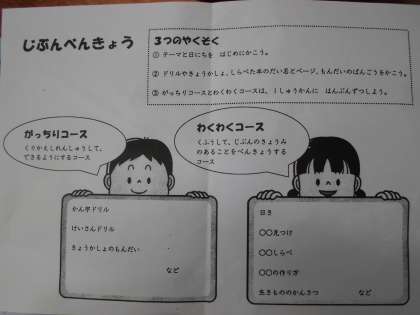 じぶんべんきょう
３つのやくそく
① テーマと日にちを　はじめにかこう。
② ドリルやきょうかしょ、しらべた本のだい名とページ、もんだいのばんごうをかこう。
③ がっちりコースとわくわくコースは、１しゅうかんに　はんぶんずつしよう。
がっちりコース
くりかえしれんしゅうして、
できるようにするコース
わくわくコース
くふうして、じぶんのきょうみ
のあることをべんきょうする
コース
かん字ドリル
けいさんドリル
きょうかしょのもんだい
など
日き
〇〇見つけ
〇〇しらべ
〇〇の作り方
生きもののかんさつ　など